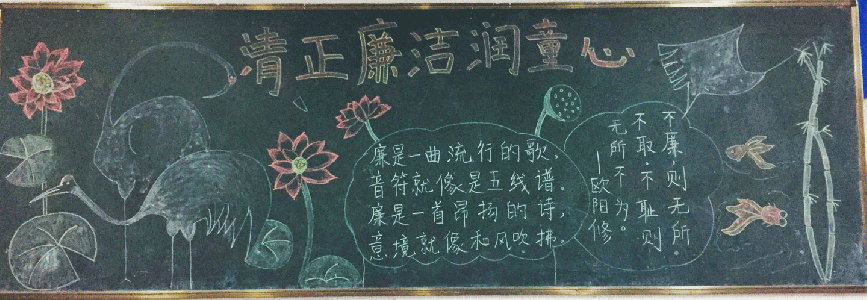 清正廉洁润童心
廉是一曲流行的歌，
音符就像是五线谱。
廉是一首昂扬的诗，
意境就像和风吹拂。
不廉，则无所
不取·不耻则
无所不为。
—欧阳修